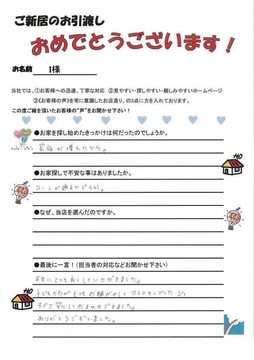 ご新居のお引渡し
おめでとうございます！
お名前 I様
当社では、①お客様への迅速、丁寧な対応 ②見やすい・探しやすい・親しみやすいホームページ
③《お客様の声》を常に意識したお店造り、の3点に力を入れております。
この度ご縁を頂いたお客様の"声"をお聞かせ下さい！
●お家を探し始めたきっかけは何だったのでしょうか。
家族が増えたから。
●お家探しで不安な事はありましたか。
ローンが通るかどうか。
●なぜ、当店を選んだのですか。
●最後に一言！(担当者の対応などお聞かせ下さい)
本当にとても良くしていただきました。
すべて安心しておまかせできました。
ありがとうございました。